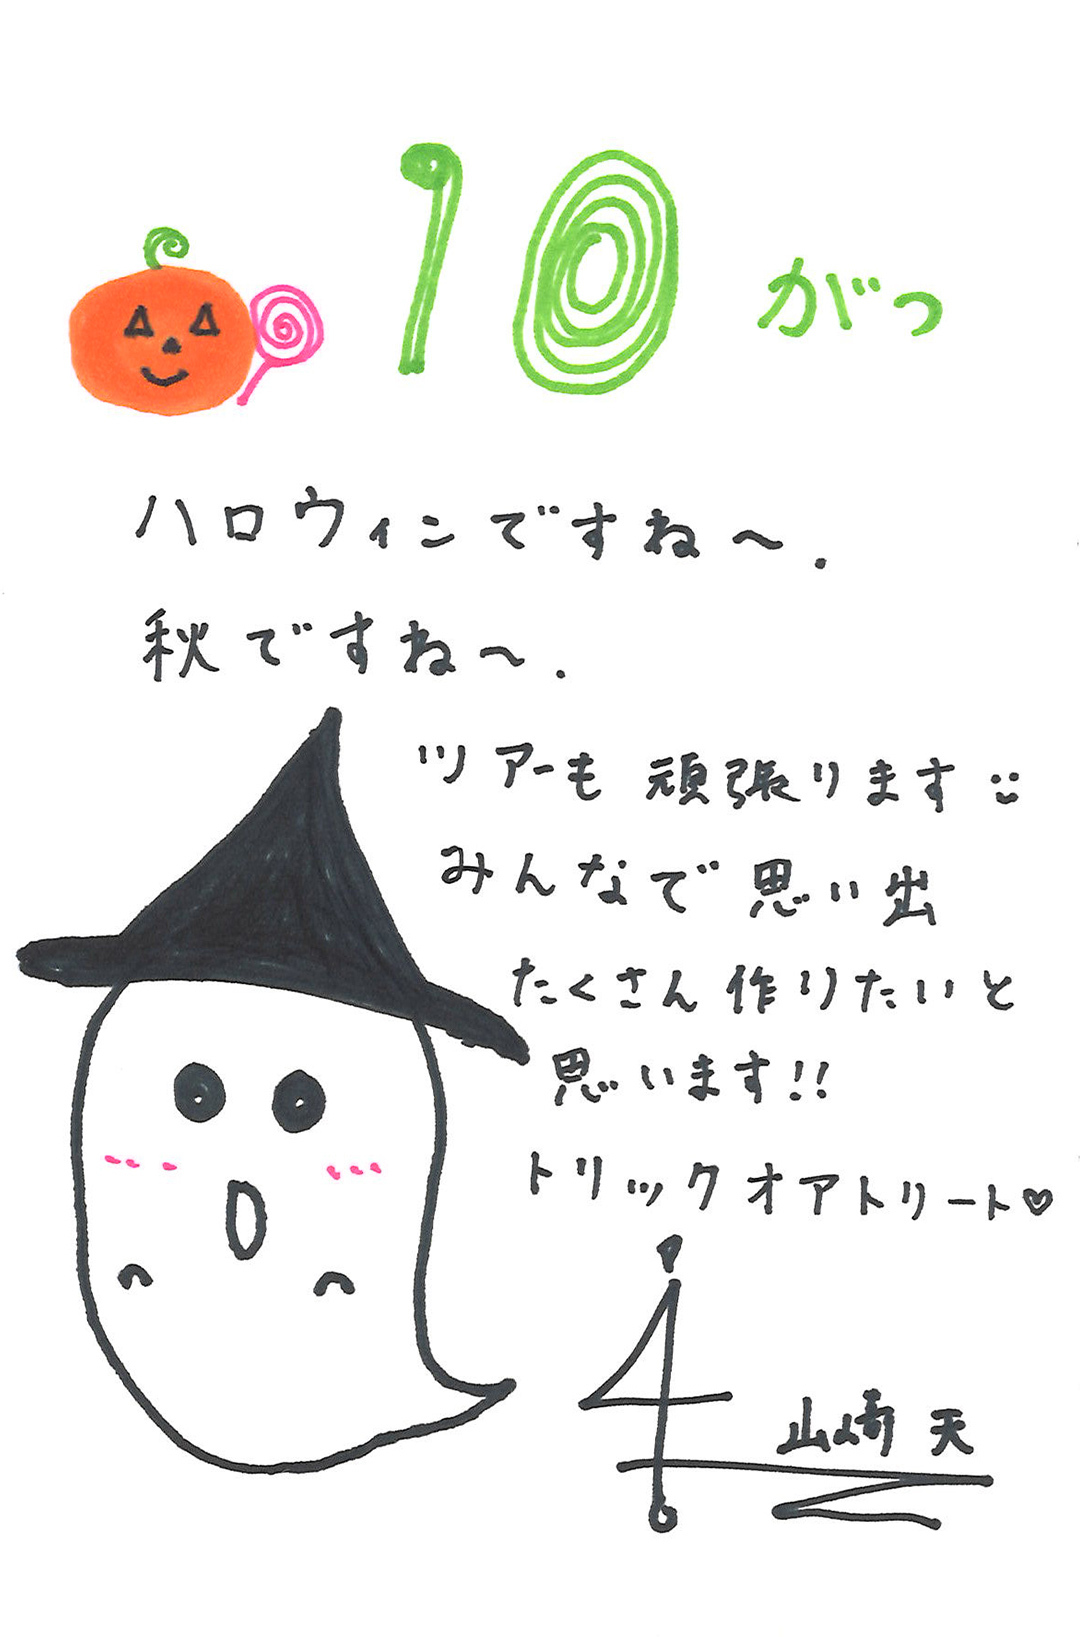 10がつ
ハロウィンですね〜.
秋ですね〜.
ツアーも頑張ります
みんなで思い出
たくさん作りたいと
思います!!
トリックオアトリート♡
山﨑 天